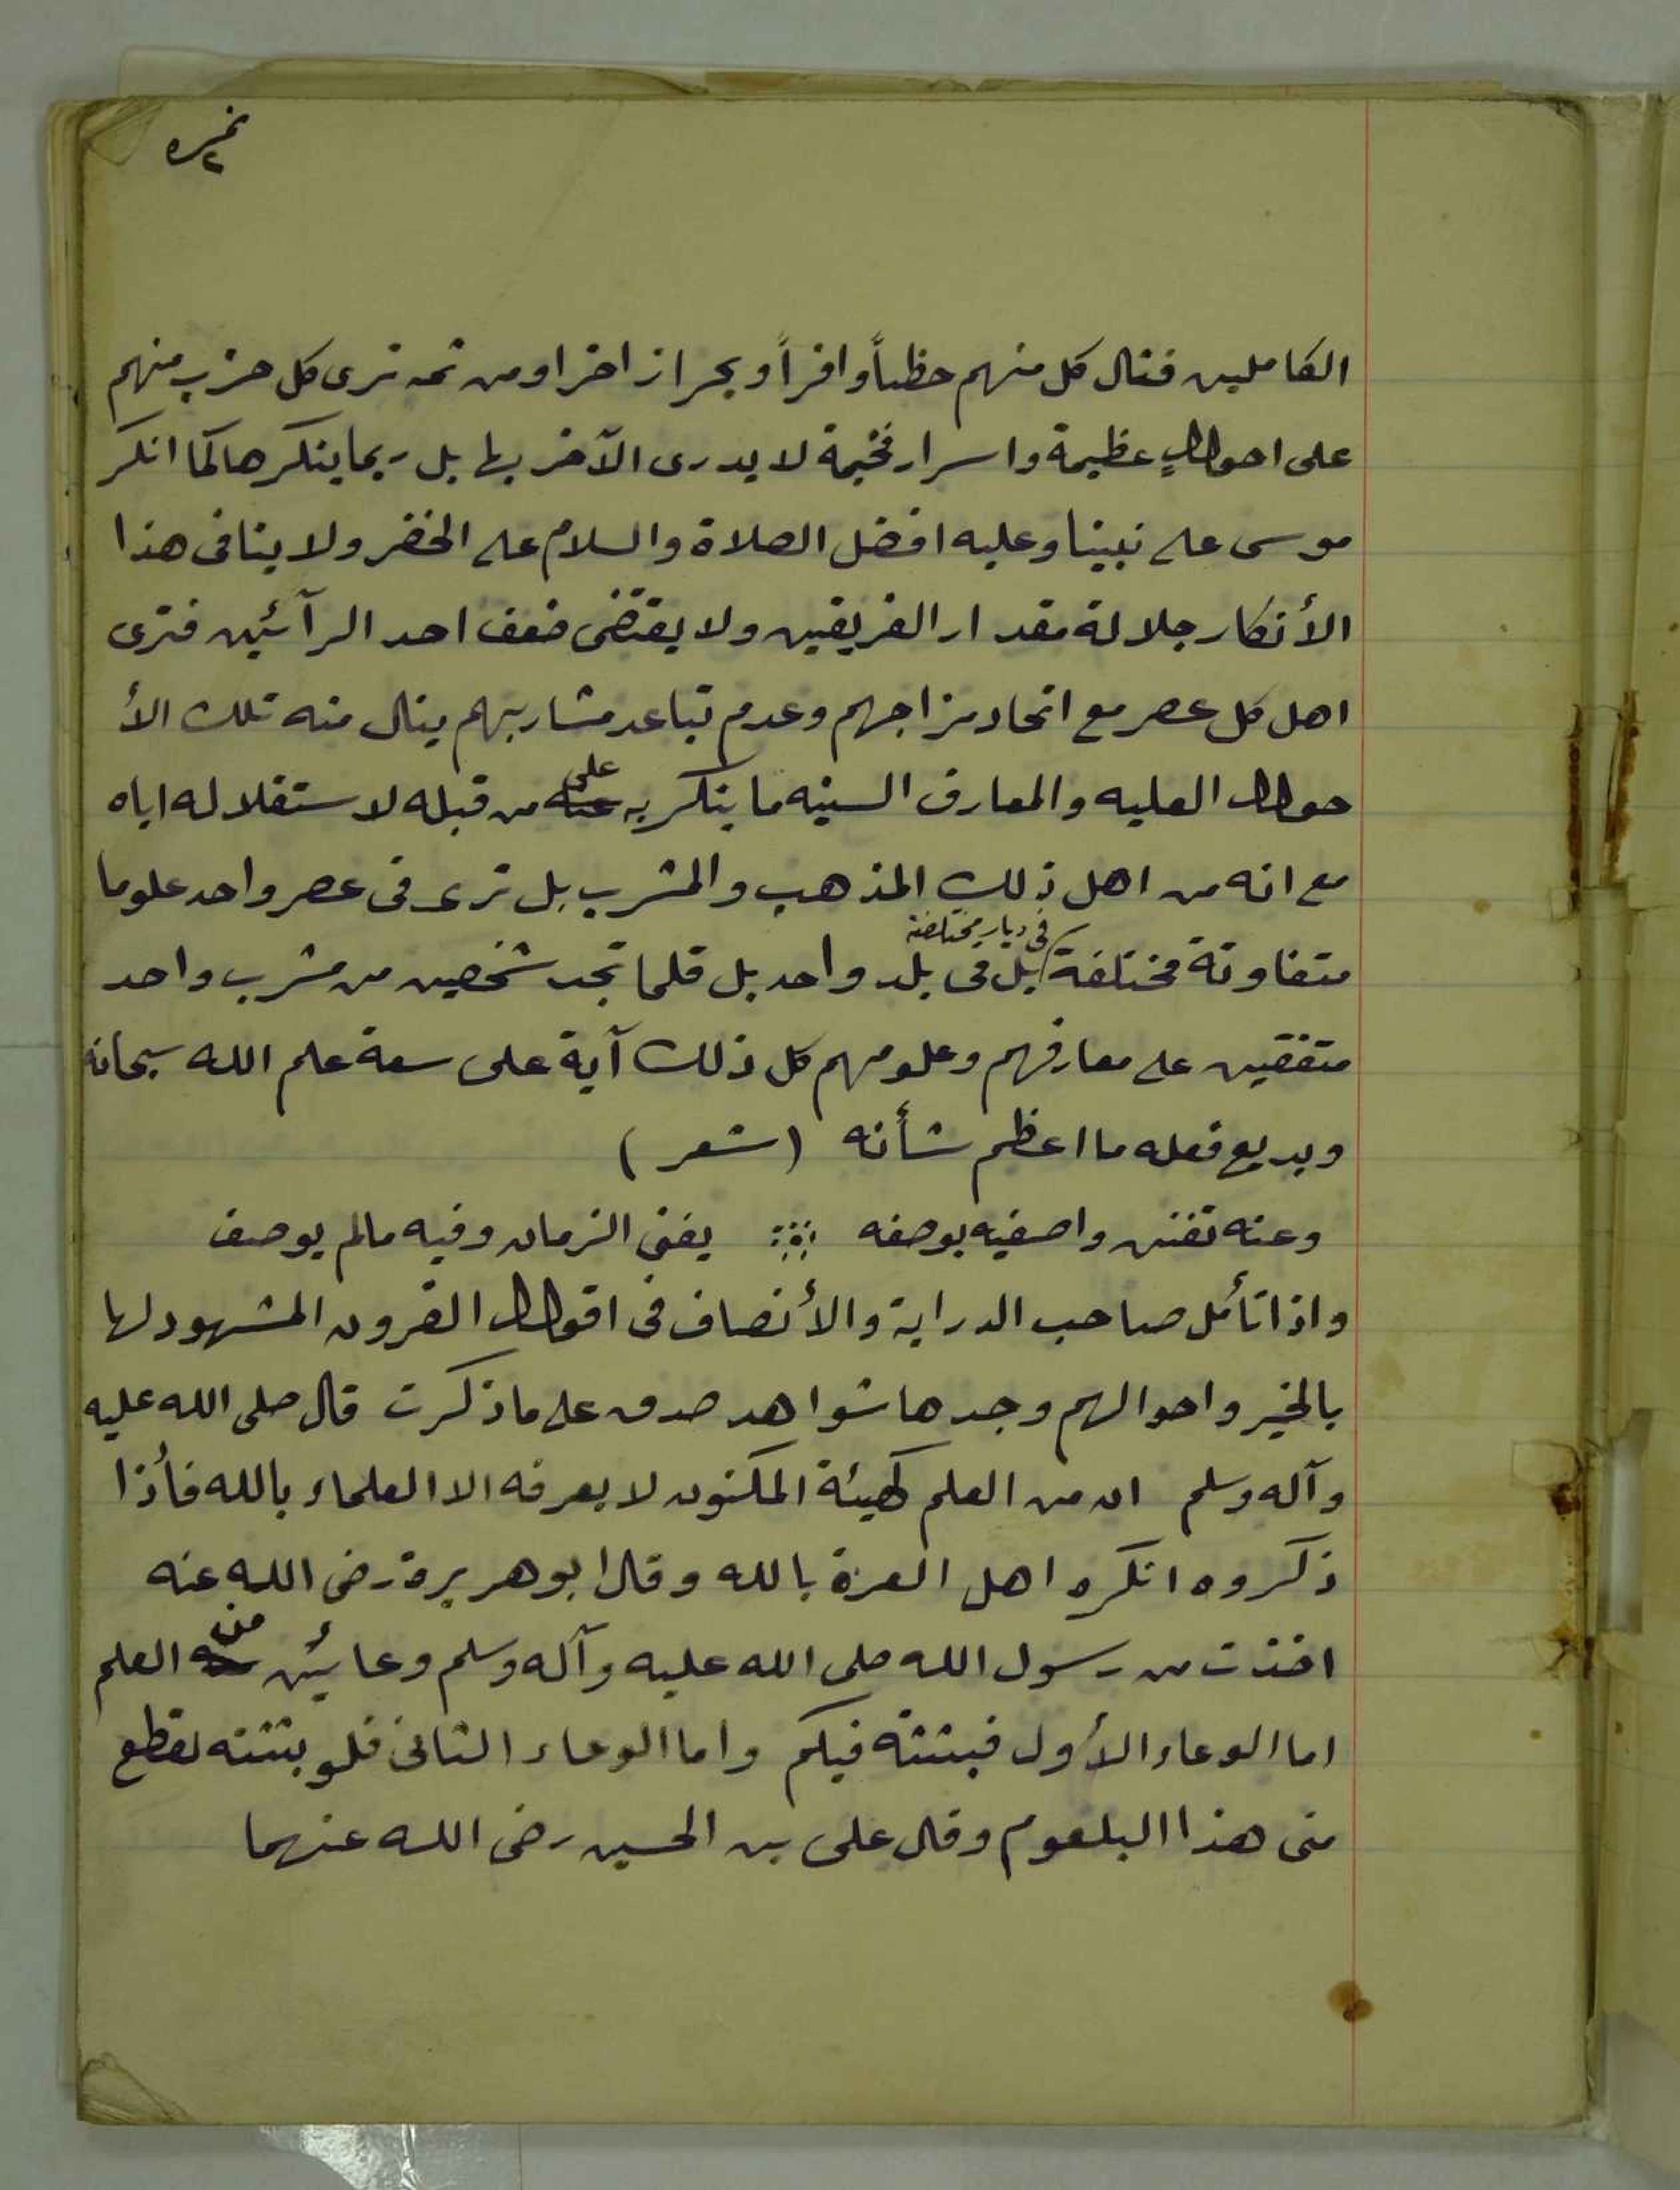 نمره ٢
الكاملين فنال كل منهم حظاً وافراً وبحرا زاخرا ومن ثمه ترى كل حزب منهم
على احوالٍ عظيمة واسرار فخيمة لا يدرى الآخر بها بل ربما ينكرها كما انكر
موسى على نبينا وعليه افضل الصلاة والسلام على الخضر ولا ينافى هذا
الأنكار جلالة مقدار الفريقين ولا يقتضى ضعف احد الرآئين فترى
اهل كل عصر مع اتحاد مزاجهم وعدم تباعد مشاربهم ينال منه تلك الأ
حوال العليه والمعارف السنيه ما ينكر به على من قبله لاستقلاله اياه
مع انه من اهل ذلك المذهب والمشرب بل ترى فى عصر واحد علوما
متفاوتة مختلفة فى ديار مختلفة بل فى بلد واحد بل قلما تجد شخصين من مشرب واحد
متفقين على معارفهم وعلومهم كل ذلك آية على سعة علم الله سبحانه
وبديع فعله ما اعظم شأنه (شعر)
وعنه تفنن واصفيه بوصفه ⁘ يفنى الزمان وفيه مالم يوصف
واذا تأمل صاحب الدراية والأنصاف فى اقوال القرون المشهود لها
بالخير واحوالهم وجدها شواهد صدق على ما ذكرت قال صلى الله عليه
وآله وسلم ان من العلم كهيئة المكنون لا يعرفه الا العلماء بالله فأذا
ذكروه انكره اهل العزة بالله وقال ابو هريرة رضى الله عنه
اخذت من رسول الله صلى الله عليه وآله وسلم وعائين من العلم
اما الوعاء الأول فبثثته فيكم واما الوعاء الثانى فلو بثثته لقطع
منى هذا البلعوم وقال على بن الحسين رضى الله عنهما